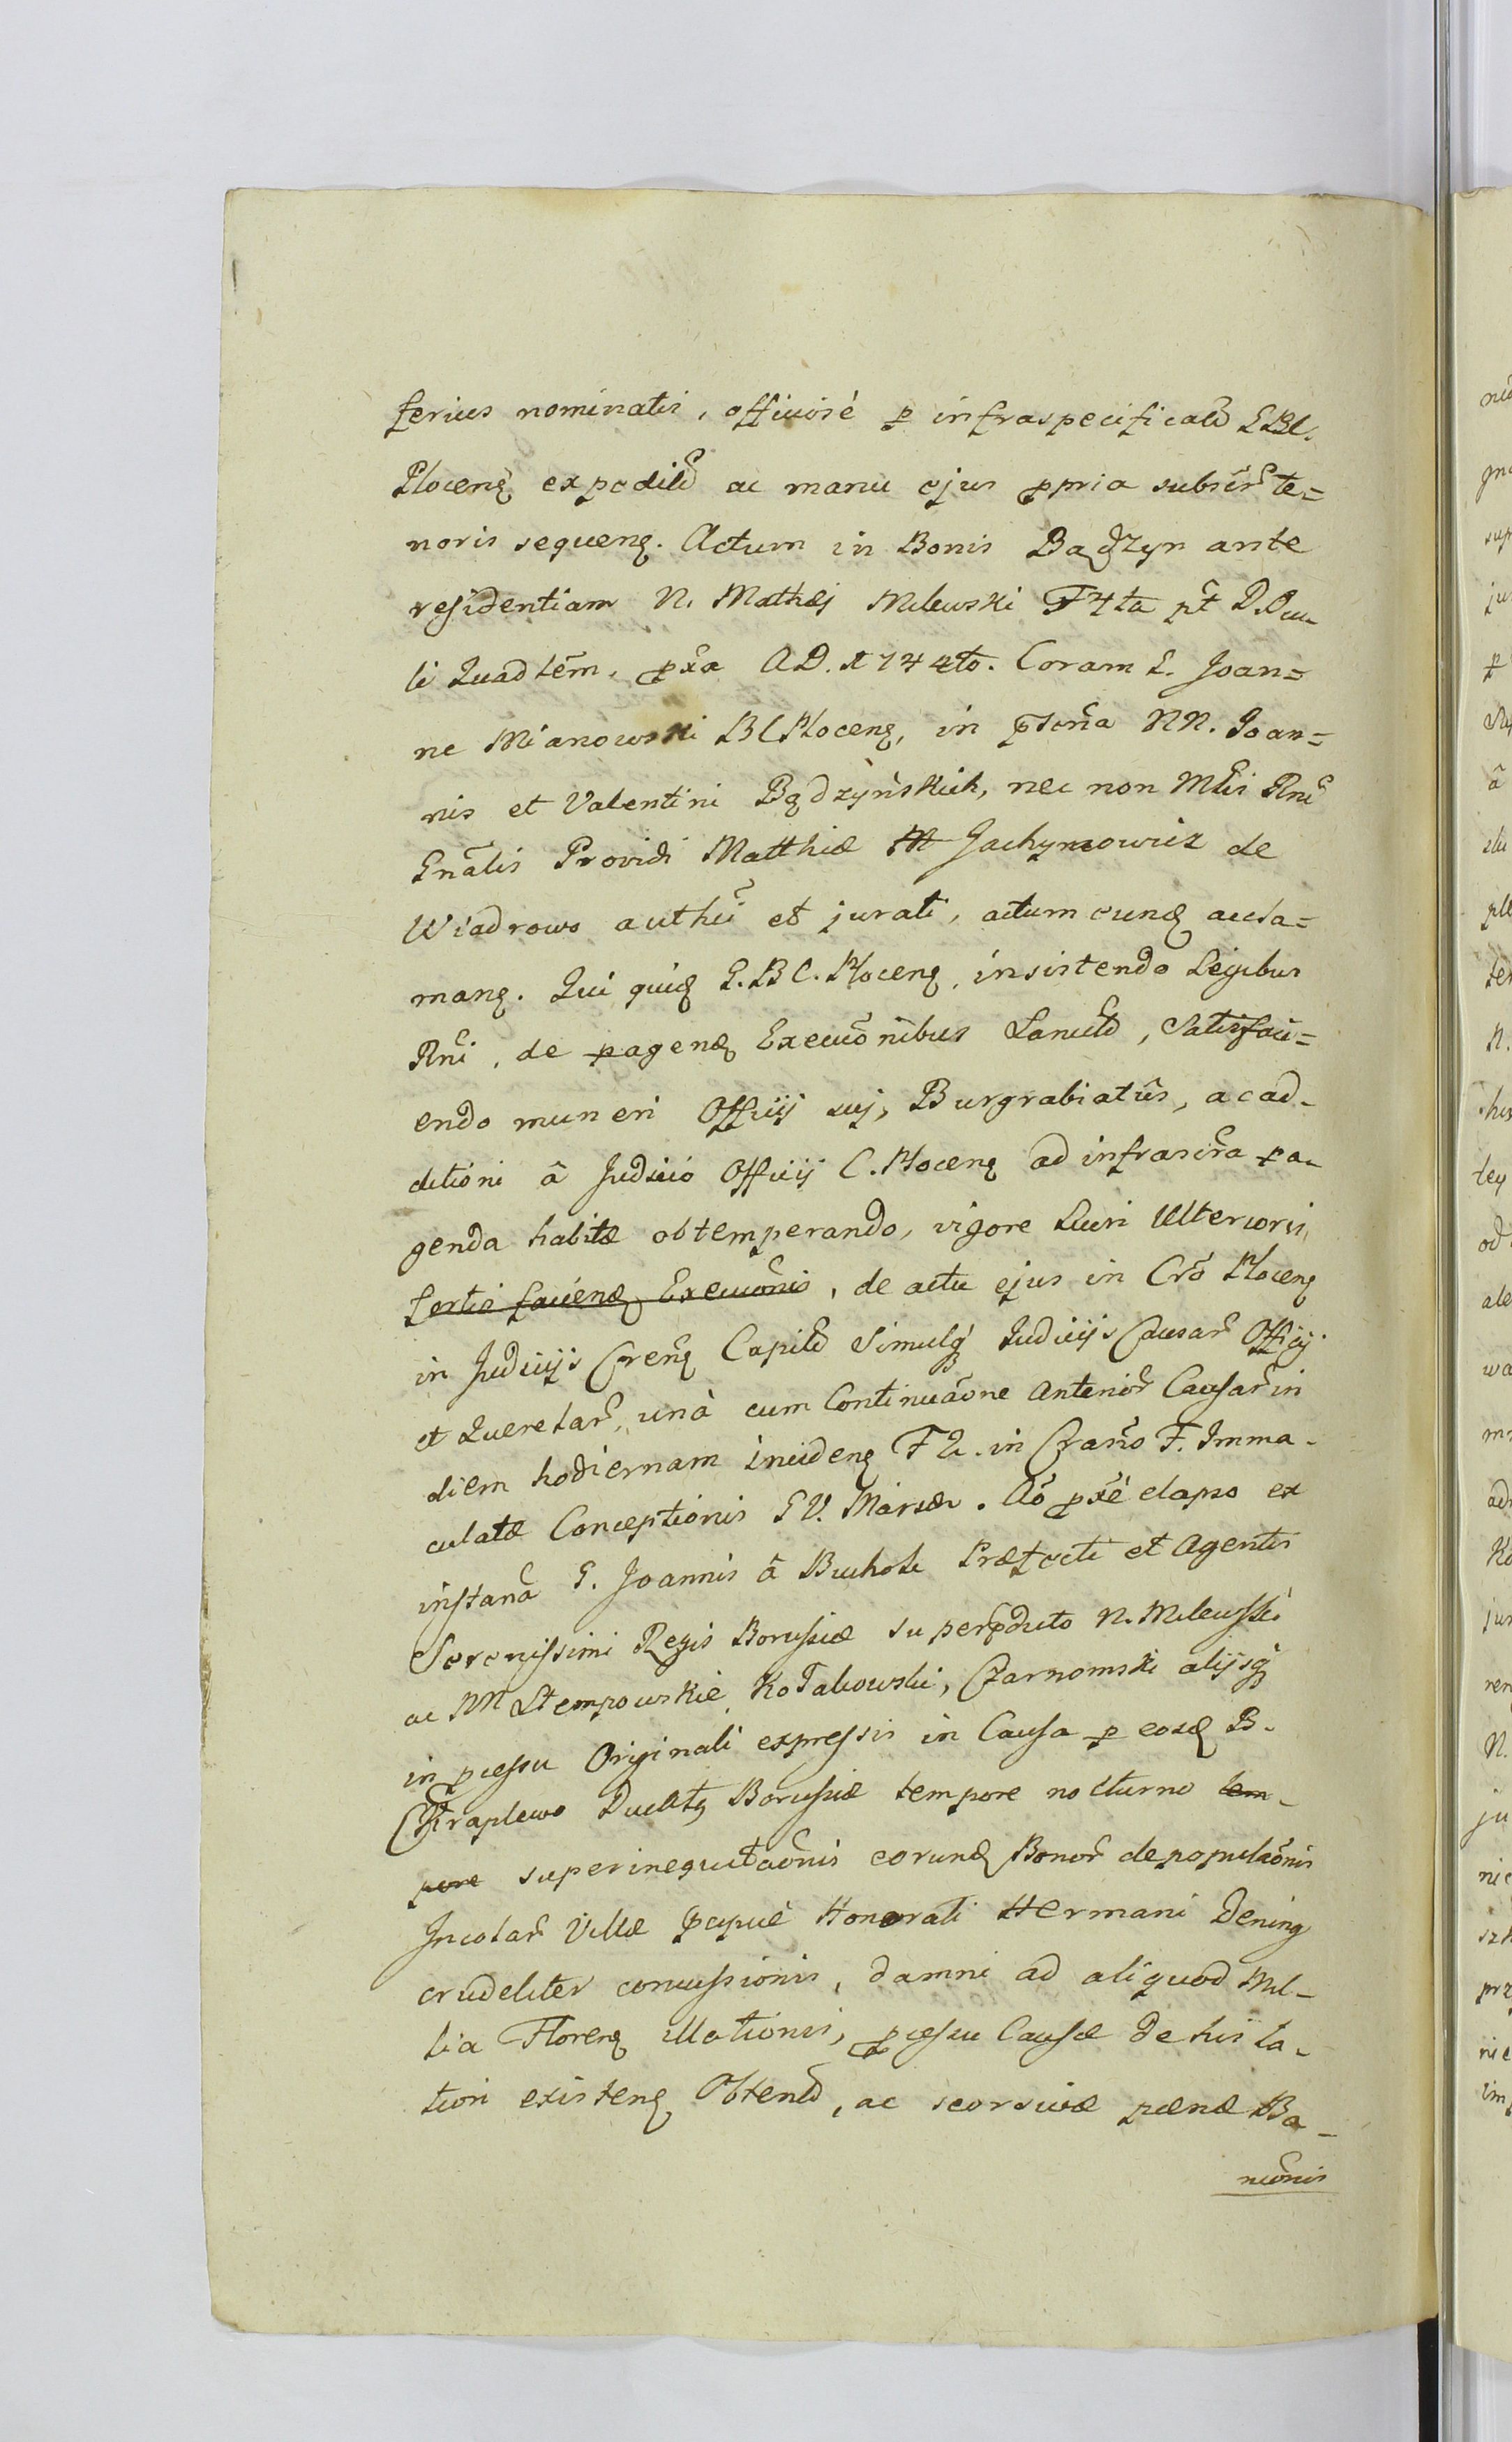 ferius nominatis, officiosè p infraspecificatũ GBC.
Plocenę expeditũ ac manu ejus ppria subscr̃ te=
noris sequenę. Actum in Bonis Bądzyn ante
residentiam N. Mathęj Milewski F 4ta pt̃ D. Ocu-
li Quadlẽm, pxã AD. 1744to. Coram G. Joan=
ne Mianowski BC Plocenę, in pso͠na NN. Joan=
nis et Valentini Bądzyńskich, nec non Mĩlis Rnĩ
Gnãlis Providi Matthiæ M Jachymowicz de
Wiadrowo authĩ et jurati, actum eunę accla=
manę. Qui quię G. BC. Plocenę, insistendo Legibus
Rnĩ, de pagenę Execuõnibus Sancitũ, Satisfaci=
endo muneri Officij suj, Burgrabiatûs, ac ad-
ditioni â Judicio Officij C. Plocenę ad infrascr̃a pa-
genda habitæ obtemperando, vigore Lucri Ulterioris,
fortis faciẽnę Execuõnis, de actu ejus in Crõ Plocenę
in Judicijs Crenę Capitũ Simulq́ Judicijs Causar̃ Officij
et Querelar̃, unà cum Continuãone Anterior̃ Causar̃ in
diem hodiernam incidenę F 2. in Crãno F. Imma-
culatæ Conceptionis GV. Mariæ. Aõ pxẽ elapso ex
instanã G. Joannis â Bucholc Præfecti et Agentis
Serenissimi Regis Borussiæ su perpducto N. Milewski
ac NN Stempowskie, Kotakowski, Czarnomski alijsq́
in pcessu Originali expressis in Causa p eosę B.
Chraplewo Ducatę Borussiæ tempore nocturno tem-
pore superinequitaõnis eorunę Bonor̃ depopulaõnis
Incolar̃ Villæ pcipuè Honorati Hermani Dening
crudeliter concussionis, damni ad aliquod Mil-
lia Florenę illationis, pcessu Causæ de his la-
tiori existenę Obtenũ, ac scorsivæ pænæ Ba-
niõnis